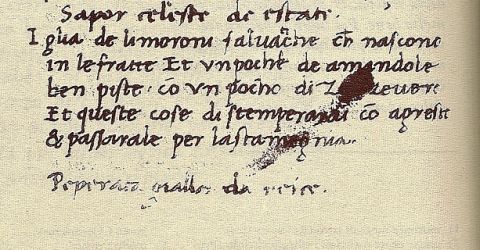 Sapor celeste de estate.
Piglia de li moroni salvatiche che nascono
in le fratte Et un poche de amandole
ben piste. cō un pocho di
Et queste cose distemperarai cō agresto
& passarale per la stamegnia.
Peperata gialla da